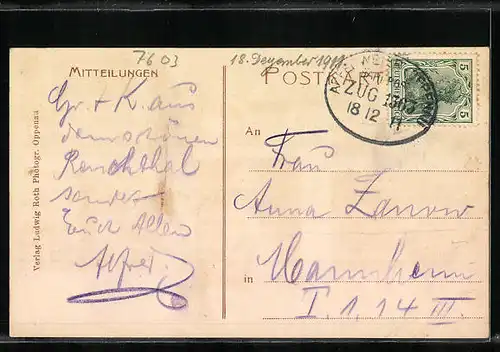 7603
18. Dezember 1911.
MITTEILUNGEN
POSTKAR
ZUG 1307
18 12 11
5 5
Gr. + K. aus
dem schönen
Renchthal
sendet
Euch Allen
Alfred.
An
Frau
Anna Zanow
in Mannheim
I. 1. 14 III.
Verlag Ludwig Roth Photogr. Oppenau